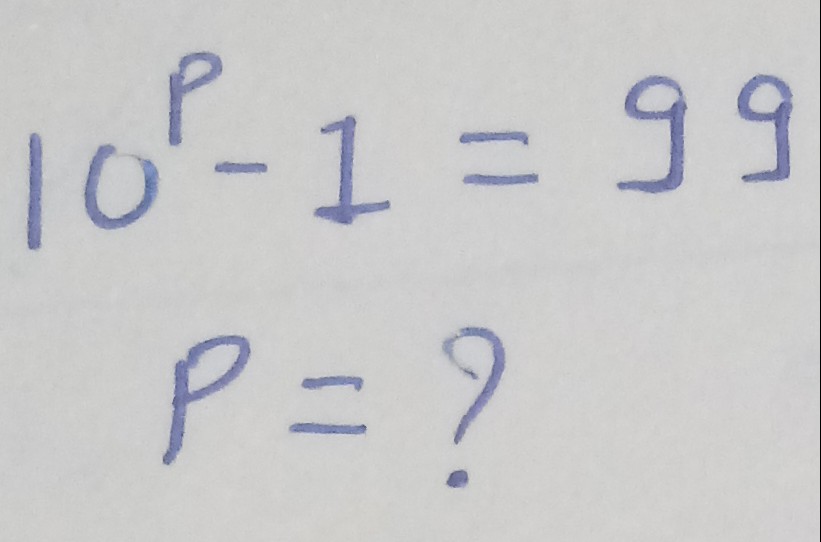 10ᵖ - 1 = 99
P = ?